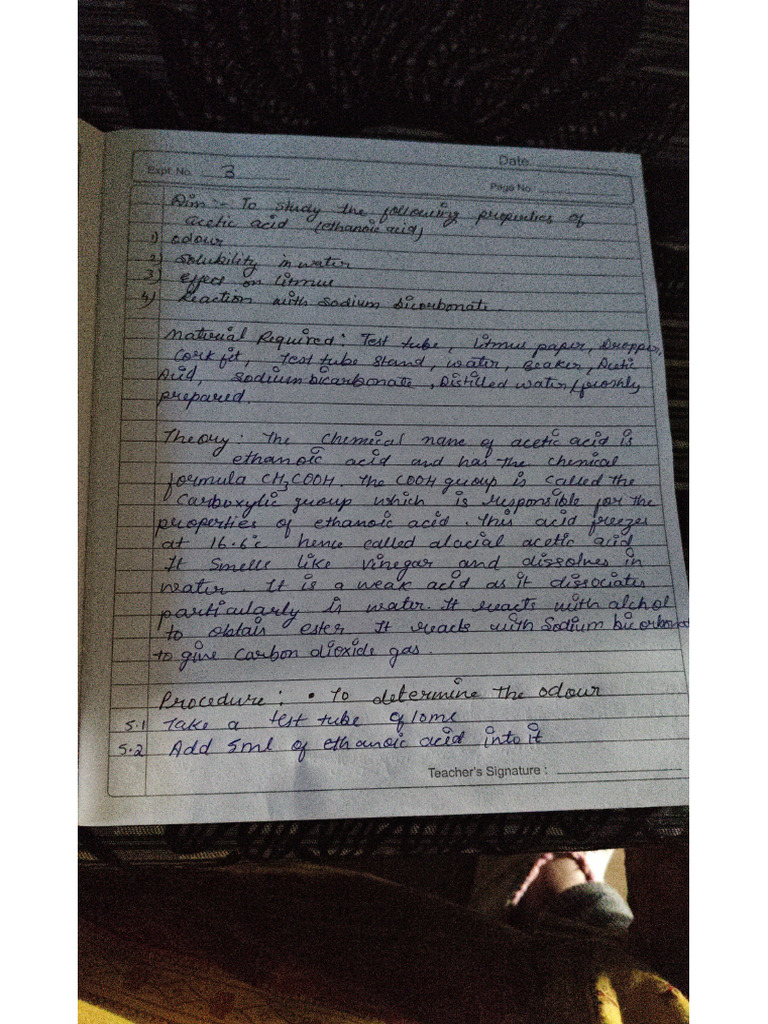 Date.
Expt. No. 3
Page No.
Aim :- To study the following properties of
acetic acid (ethanoic acid)
1) odour
2) Solubility in water
3) Effect on litmus
4) Reaction with sodium bicorbonate.
Material Required: Test tube, litmus paper, Dropper,
Cork fit, Test tube stand, water, Beaker, Acetic
Acid, sodium bicarbonate, Distilled water/freshly
prepared.
Theory: The chemical name of acetic acid is
ethanoic acid and has the chemical
formula CH3COOH. The COOH group is called the
Carboxylic group which is responsible for the
properties of ethanoic acid. This acid freezes
at 16.6°c hence called alacial acetic acid
It smells like vinegar and dissolves in
water. It is a weak acid as it dissociates
particularly in water. It reacts with alchol
to obtain ester It reacts with Sodium bicorbonat
to give Carbon dioxide gas.
Procedure: • To determine the odour
5.1 Take a test tube of 10ml
5.2 Add 5ml of ethanoic acid into it
Teacher's Signature :